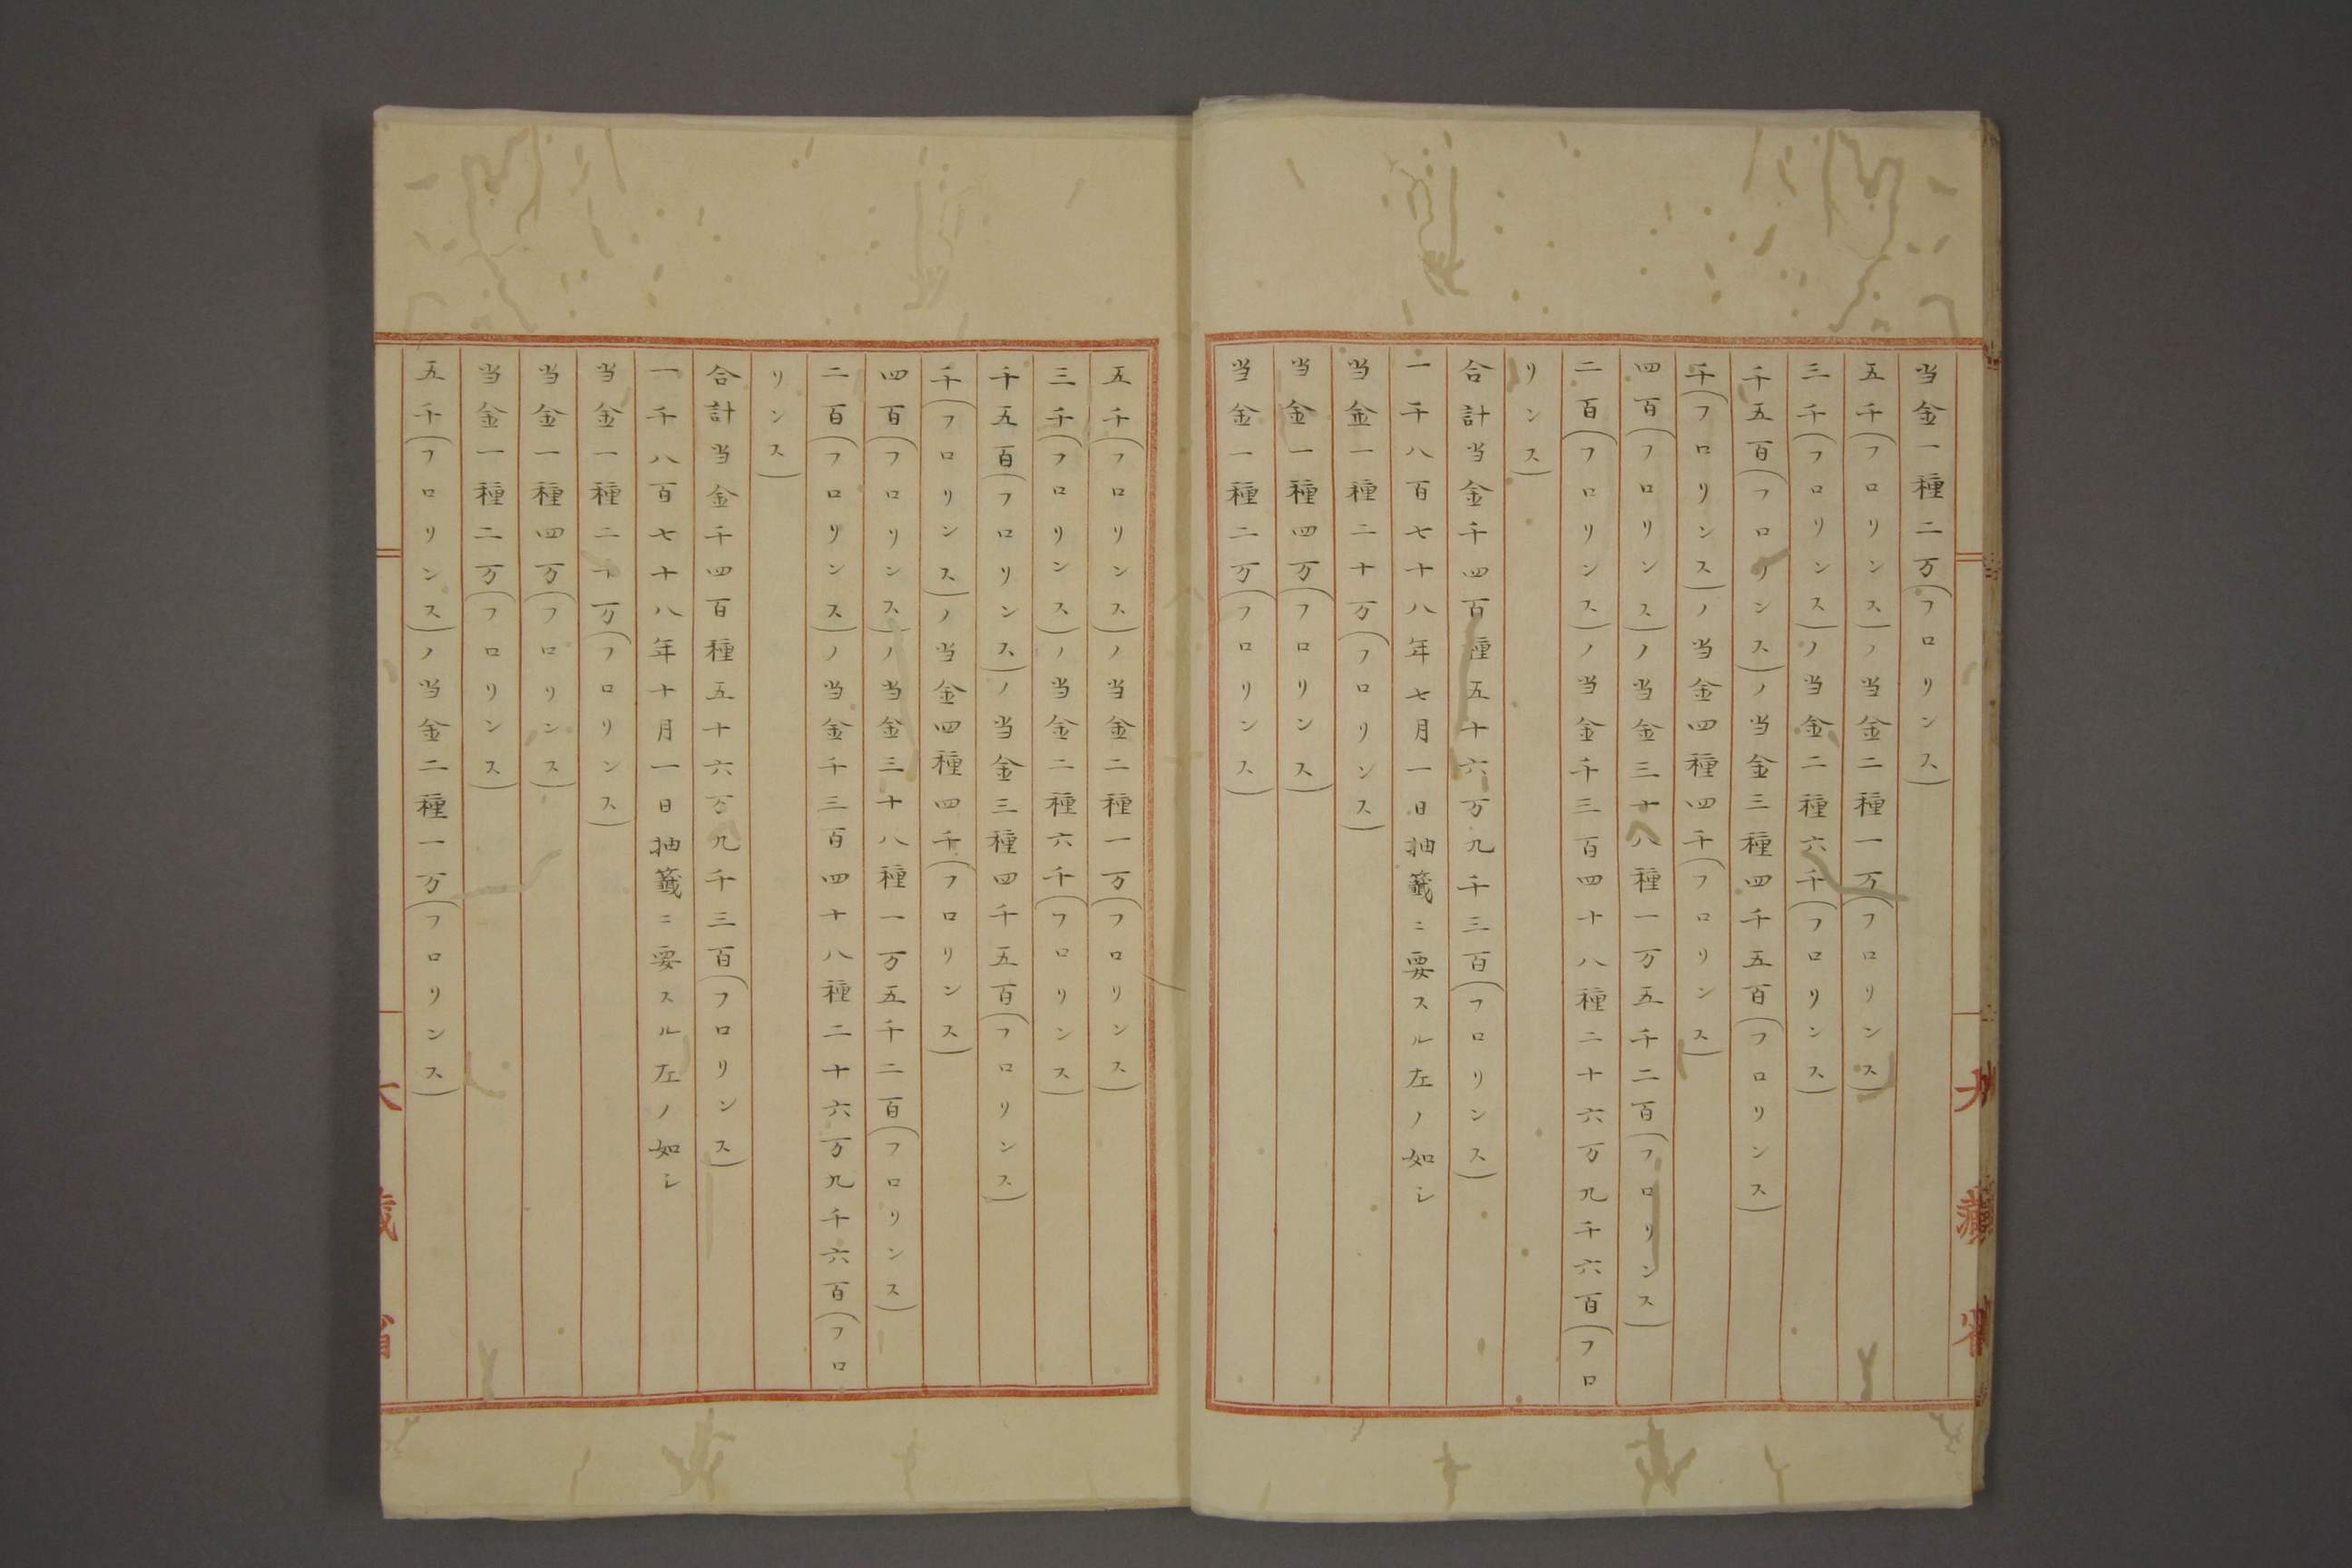 当金一種二万(フロリンス)
五千(フロリンス)ノ当金二種一万(フロリンス)
三千(フロリンス)ノ当金二種六千(フロリンス)
千五百(フロリンス)ノ当金三種四千五百(フロリンス)
千(フロリンス)ノ当金四種四千(フロリンス)
四百(フロリンス)ノ当金三十八種一万五千二百(フロリンス)
二百(フロリンス)ノ当金千三百四十八種二十六万九千六百(フロ
リンス)
合計当金千四百種五十六万九千三百(フロリンス)
一千八百七十八年七月一日抽籤ニ要スル左ノ如シ
当金一種二十万(フロリンス)
当金一種四万(フロリンス)
当金一種二万(フロリンス)
五千(フロリンス)ノ当金二種一万(フロリンス)
三千(フロリンス)ノ当金二種六千(フロリンス)
千五百(フロリンス)ノ当金三種四千五百(フロリンス)
千(フロリンス)ノ当金四種四千(フロリンス)
四百(フロリンス)ノ当金三十八種一万五千二百(フロリンス)
二百(フロリンス)ノ当金千三百四十八種二十六万九千六百(フロ
リンス)
合計当金千四百種五十六万九千三百(フロリンス)
一千八百七十八年十月一日抽籤ニ要スル左ノ如シ
当金一種二十万(フロリンス)
当金一種四万(フロリンス)
当金一種二万(フロリンス)
五千(フロリンス)ノ当金二種一万(フロリンス)
大蔵省